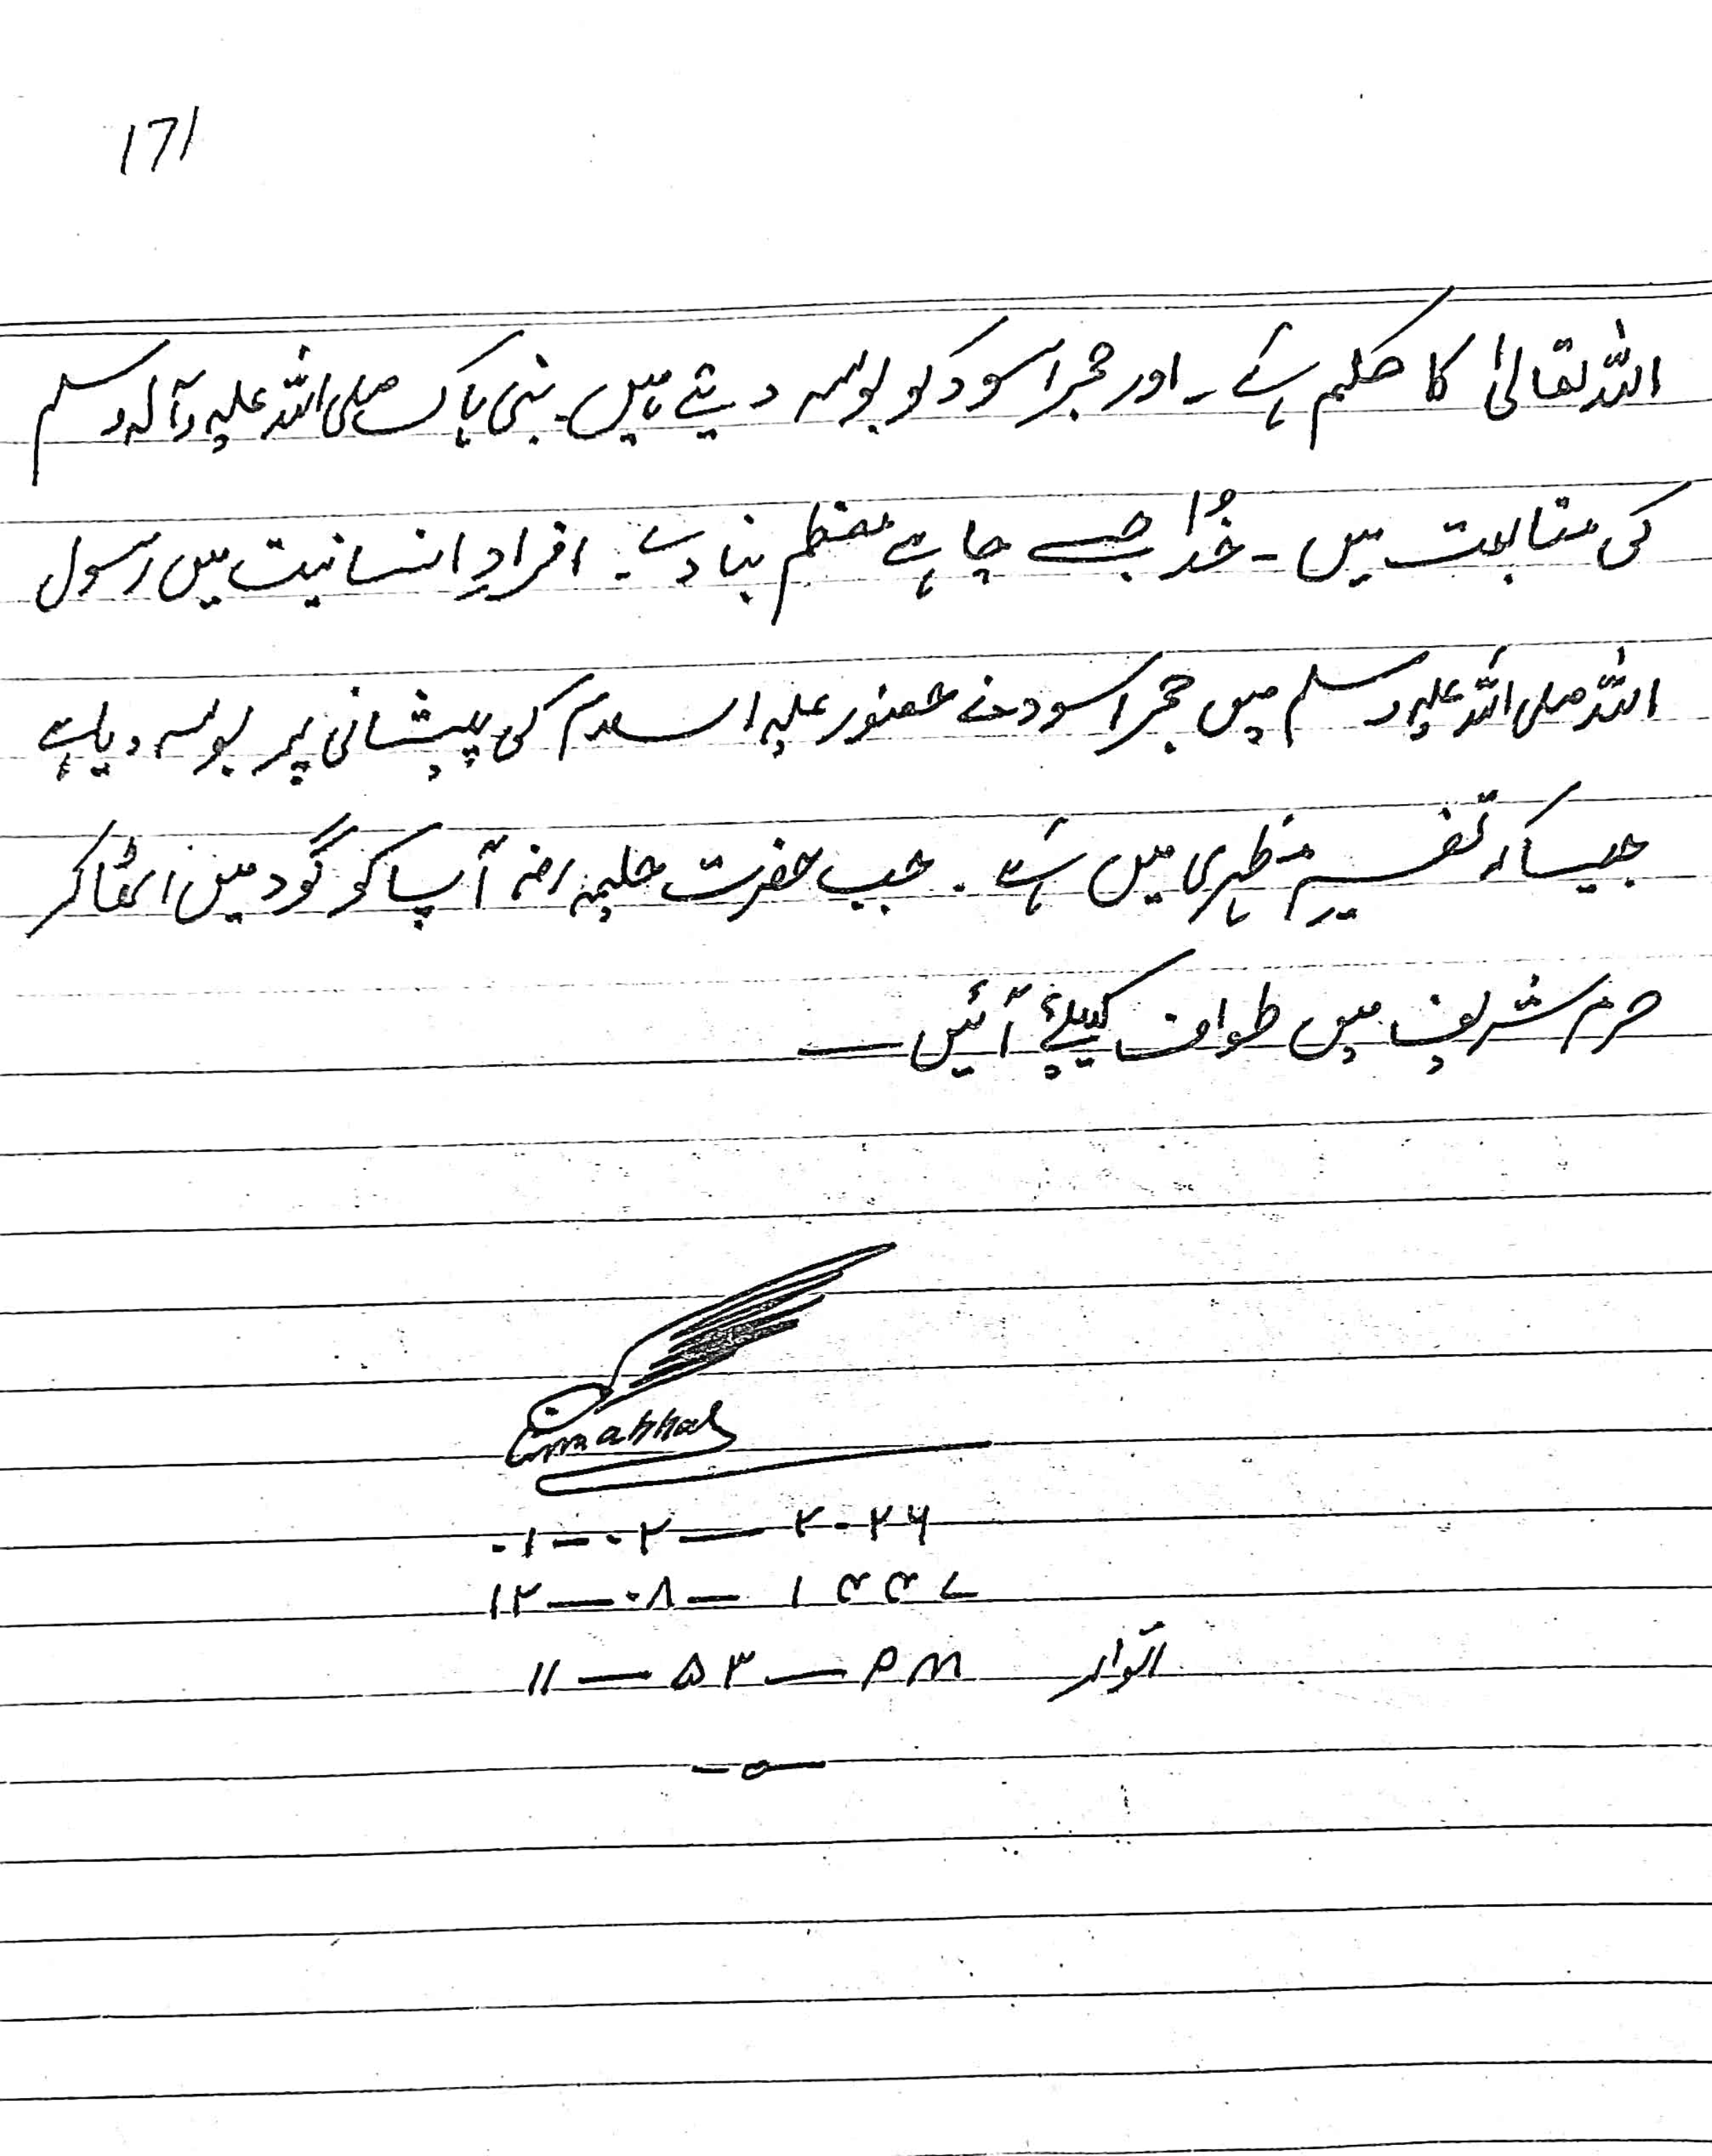 171
اللہ تعالیٰ کا حکم ہے۔ اور حجر اسود کو بوسہ دیتے ہیں۔ نبی پاک صلی اللہ علیہ وآلہ وسلم
کی متابعت میں۔ خُدا جسے چاہے معظم بنا دے۔ افرادِ انسانیت میں رسول
اللہ صلی اللہ علیہ وسلم ہیں حجر اسود نے حضور علیہ السلام کی پیشانی پر بوسہ دیا ہے
جیسا کہ تفسیر مظہری میں ہے۔ جب حضرت حلیمہ رضہ آپ کو گود میں اٹھا کر
حرم شریف میں طواف کیلئے آئیں ــ
۰۱ — ۰۲ — ۲۰۲۶
۱۲ — ۰۸ — ۱۴۴۷
۱۱ — ۵۳ — PM اتوار